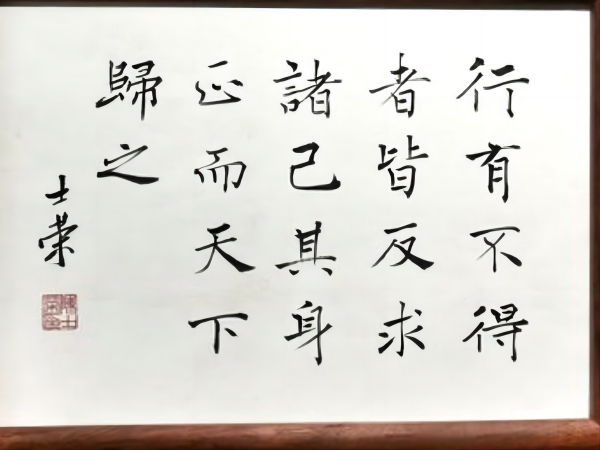 行有不得
者皆反求
諸己其身
正而天下
歸之
士榮